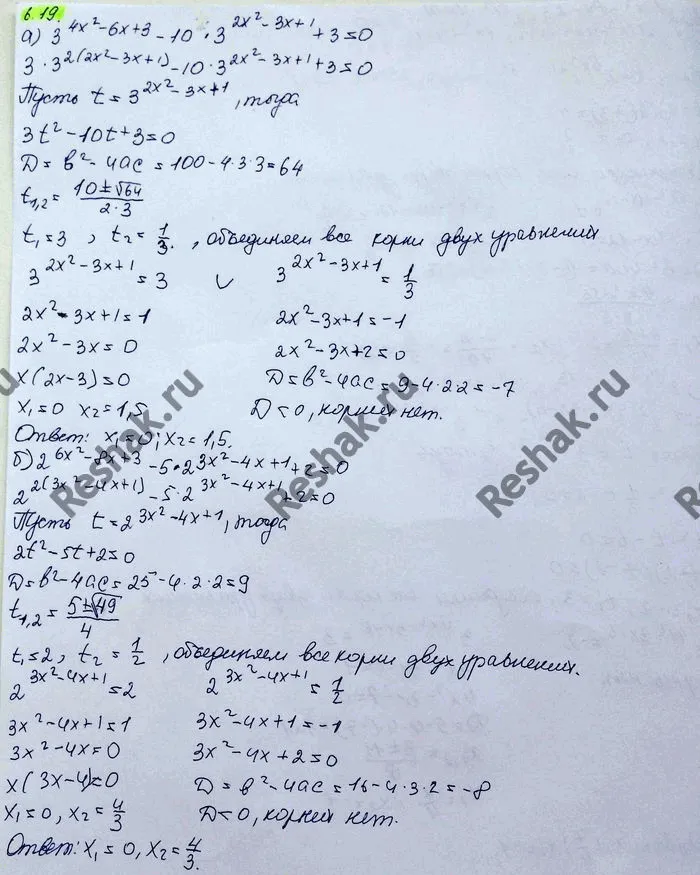 6.19.
а) 3^(4x²-6x+3) - 10 · 3^(2x²-3x+1) + 3 = 0
3 · 3^(2(2x²-3x+1)) - 10 · 3^(2x²-3x+1) + 3 = 0
Пусть t = 3^(2x²-3x+1), тогда
3t² - 10t + 3 = 0
D = в² - 4ac = 100 - 4·3·3 = 64
t₁,₂ = (10 ± √64)/(2·3)
t₁ = 3, t₂ = 1/3., объединяем все корни двух уравнений
3^(2x²-3x+1) = 3 ∪ 3^(2x²-3x+1) = 1/3
2x² - 3x + 1 = 1 2x² - 3x + 1 = -1
2x² - 3x = 0 2x² - 3x + 2 = 0
x(2x-3) = 0 D = в² - 4ac = 9 - 4·2·2 = -7
x₁ = 0 x₂ = 1,5 D < 0, корней нет.
Ответ: x₁ = 0; x₂ = 1,5.
б) 2^(6x²-8x+3) - 5 · 2^(3x²-4x+1) + 2 = 0
2^(2(3x²-4x+1)) - 5 · 2^(3x²-4x+1) + 2 = 0
Пусть t = 2^(3x²-4x+1), тогда
2t² - 5t + 2 = 0
D = в² - 4ac = 25 - 4·2·2 = 9
t₁,₂ = (5 ± √49)/4
t₁ = 2, t₂ = 1/2, объединяем все корни двух уравнений.
2^(3x²-4x+1) = 2 2^(3x²-4x+1) = 1/2
3x² - 4x + 1 = 1 3x² - 4x + 1 = -1
3x² - 4x = 0 3x² - 4x + 2 = 0
x(3x-4) = 0 D = в² - 4ac = 16 - 4·3·2 = -8
x₁ = 0, x₂ = 4/3 D < 0, корней нет.
Ответ: x₁ = 0, x₂ = 4/3.
Reshak.ru
Reshak.ru
Reshak.ru